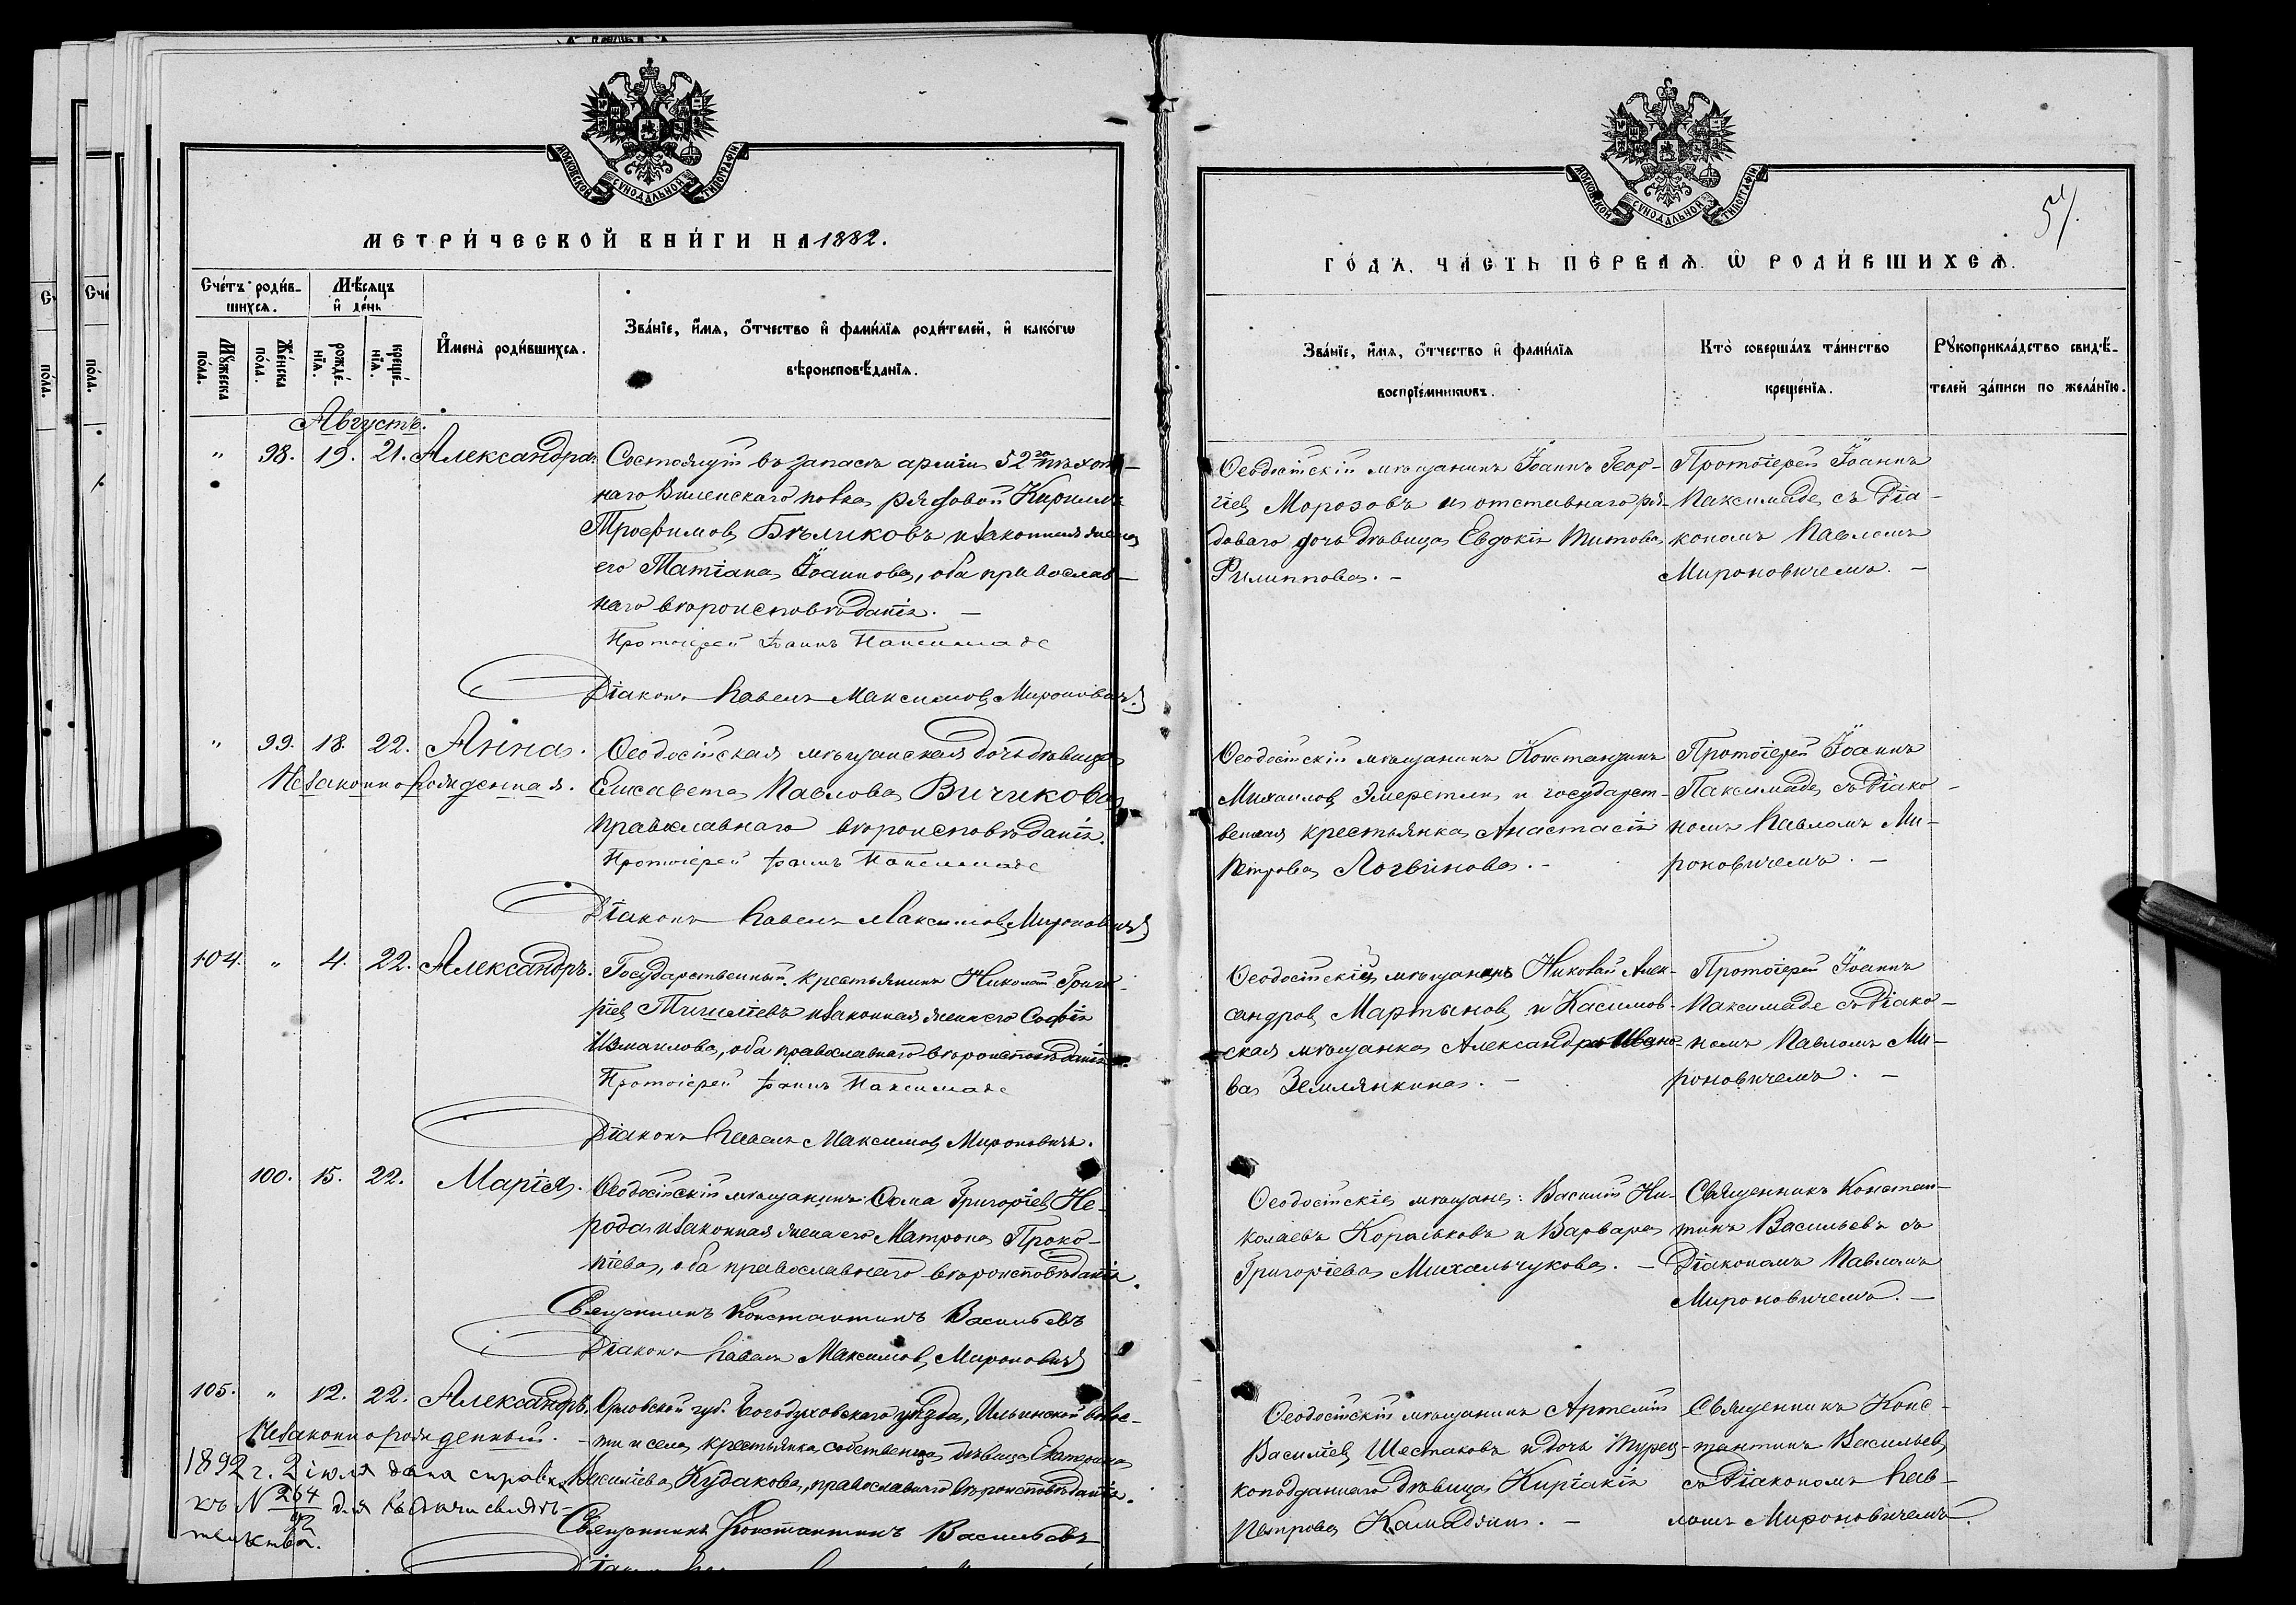 МОСКОВСКОЙ СѴНОДАЛЬНОЙ ТИПОГРАФІИ
МЕТРИ́ЧЕСКОЙ КНИ́ГИ НА 1882.
Сче́тъ роди́в-
шихсѧ.
Мѣ́сѧцъ
и҆ де́нь
Мꙋ́жеска
по́ла.
Же́нска
по́ла.
рожде́-
нїѧ.
креще́-
нїѧ.
И҆мена̀ роди́вшихсѧ.
Зва́нїе, и҆́мѧ, ѻ҆́тчество и҆ фами́лїѧ роди́телей, и҆ како́гѡ
вѣроисповѣ́данїѧ.
Августъ.
" 98. 19. 21. Александра.
Состоящій въ запасѣ арміи 52го пѣхот-
наго Виленскаго полка рядовой Кириллъ
Трофимовъ Бѣликовъ и законная жена
его Татіана Іоаннова, оба православ-
наго вѣроисповѣданія. –
Протоіерей Іоаннъ Паксимаде
Діаконъ Павелъ Максимовъ Мироновичъ.
" 99. 18. 22. Анна.
Незаконнорожденная.
Ѳеодосійская мѣщанская дочь дѣвица
Елисавета Павлова Вичикова
православнаго вѣроисповѣданія.
Протоіерей Іоаннъ Паксимаде
Діаконъ Павелъ Максимовъ Мироновичъ
104. " 4. 22. Александръ.
Государственный крестьянинъ Николай Григо-
ріевъ Тишліевъ и законная жена его Софія
Измаилова, оба православнаго вѣроисповѣданія.
Протоіерей Іоаннъ Паксимаде
Діаконъ Павелъ Максимовъ Мироновичъ.
100. 15. 22. Марія.
Ѳеодосійскій мѣщанинъ Ѳома Григоріевъ Не-
рода и законная жена его Матрона Проко-
піева, оба православнаго вѣроисповѣданія.
Священникъ Константинъ Васильевъ
Діаконъ Павелъ Максимовъ Мироновичъ
105. " 12. 22. Александръ.
Незаконнорожденный. –
Орловской губ. Богодуховскаго уѣзда, Ильинской волос-
ти и села крестьянка собственица дѣвица Екатерина
Василіева Кудакова, православнаго вѣроисповѣданія.
Священникъ Константинъ Васильевъ
1892 г. 2 іюля дана справка
къ N 264 для выдачи свидѣ-
тельства.
МОСКОВСКОЙ СѴНОДАЛЬНОЙ ТИПОГРАФІИ
ГО́ДЪ, ЧА́СТЬ ПЕ́РВАѦ, Ѡ РОДИ́ВШИХСѦ.
Зва́нїе, и҆́мѧ, ѻ҆́тчество и҆ фами́лїѧ
воспрїе́мникѡвъ.
Кто̀ соверша́лъ та́инство
креще́нїѧ.
Рꙋкоприкла́дство свидѣ́-
телей за́писи по жела́нїю.
Ѳеодосійскій мѣщанинъ Іоаннъ Геор-
гіевъ Морозовъ и отставнаго ря-
доваго дочь дѣвица Евдокія Титова
Филиппова. –
Протоіерей Іоаннъ
Паксимаде съ Діа-
кономъ Павломъ
Мироновичемъ. –
Ѳеодосійскій мѣщанинъ Константинъ
Михаиловъ Эмеретли и государст-
венная крестьянка Анастасія
Петрова Логвинова. –
Протоіерей Іоаннъ
Паксимаде съ Діако-
номъ Павломъ Ми-
роновичемъ. –
Ѳеодосійскій мѣщанинъ Николай Алек-
сандровъ Мартыновъ и Касимов-
ская мѣщанка Александра Ивано-
ва Землянкина. –
Протоіерей Іоаннъ
Паксимаде съ Діако-
номъ Павломъ Ми-
роновичемъ. –
Ѳеодосійскіе мѣщане: Василій Ни-
колаевъ Корольковъ и Варвара
Григоріева Михальчукова. –
Священникъ Констан-
тинъ Васильевъ съ
Діакономъ Павломъ
Мироновичемъ. –
Ѳеодосійскій мѣщанинъ Артемій
Василіевъ Шестаковъ и дочь Турец-
коподданнаго дѣвица Киріакія
Петрова –
Священникъ Конс-
тантинъ Васильевъ
съ Діакономъ Пав-
ломъ Мироновичемъ.